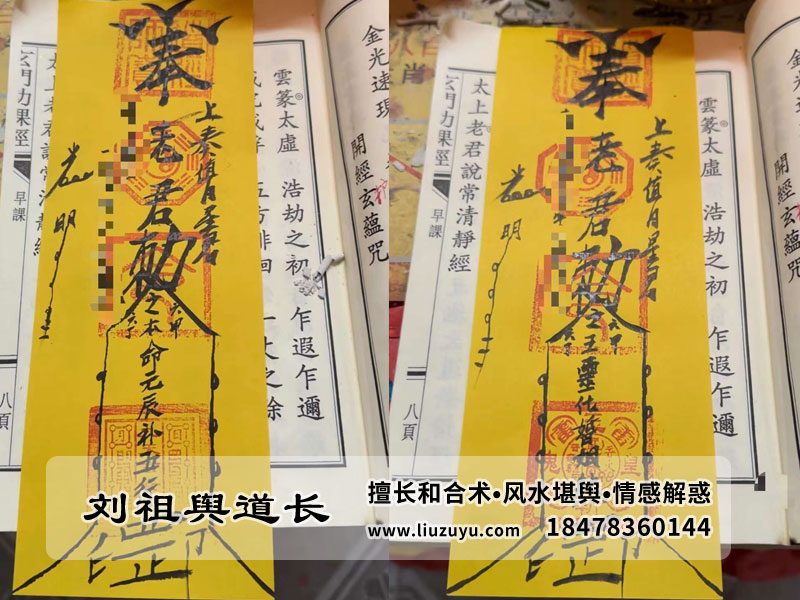 奉
老君敕
上奏值日星君
光明
之本命元辰补五行
金光速現
開經玄蘊咒
雲篆太虛 浩劫之初 乍遐乍邇
五方徘徊 一丈之餘
太上老君說常清靜經
玄門功課經
早課
八頁
奉
老君敕
上奏值日星君
光明
王靈化婚姻
金光速現
開經玄蘊咒
雲篆太虛 浩劫之初 乍遐乍邇
太上老君說常清靜經
玄門功課經
早課
八頁
刘祖舆道长
擅长和合术•风水堪舆•情感解惑
www.liuzuyu.com 18478360144